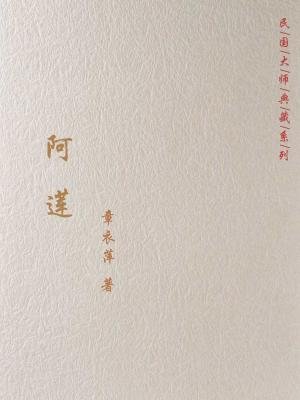 民|国|大|师|典|藏|系|列
阿莲
章衣萍 著